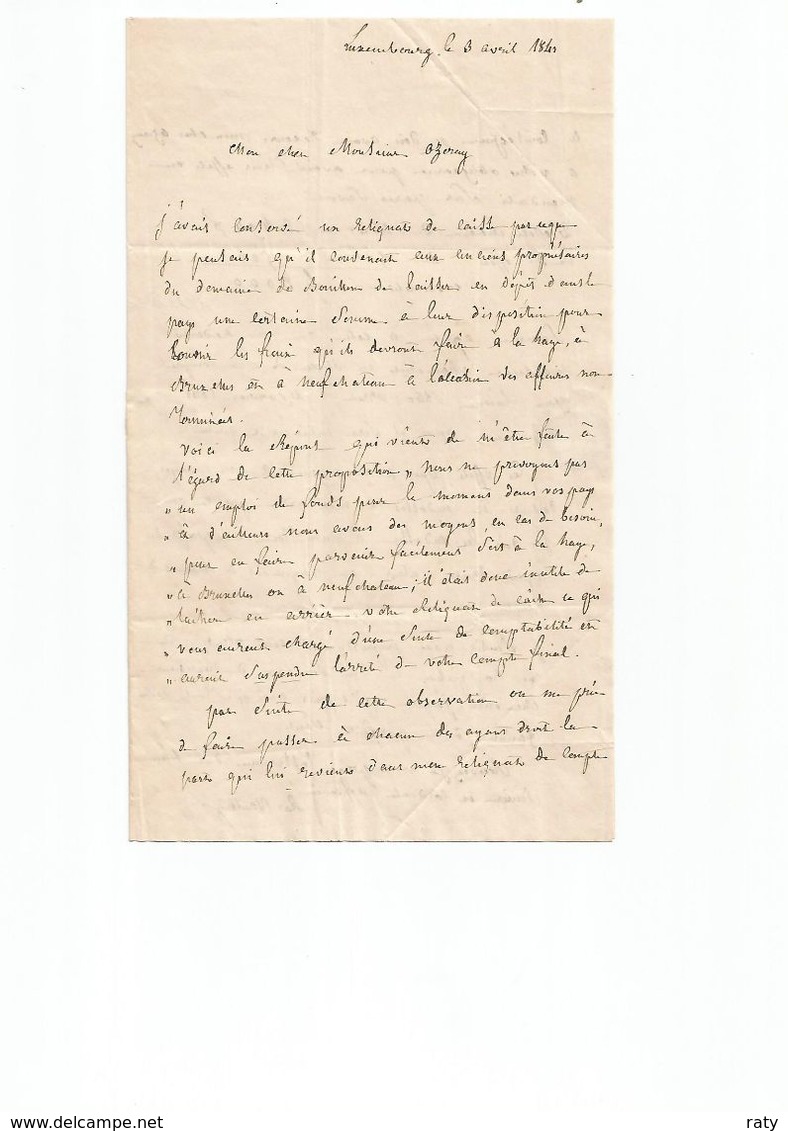 Luxembourg, le 3 avril 1841
Mon cher Monsieur Ozeray
j'avais conservé un reliquat de caisse parceque
je pensais qu'il convenait aux anciens propriétaires
du domaine de Bouillon de laisser en dépôt dans le
pays une certaine somme à leur disposition pour
couvrir les fraix qu'ils devront faire à la haye, à
Bruxelles ou à neufchateau à l'occasion des affaires non
terminées.
Voici la réponse qui vient de m'être faite à
l'égard de cette proposition, " nous ne prévoyons pas
" un emploi de fonds pour le moment dans vos pays
" et d'ailleurs nous avons des moyens, en cas de besoin,
" pour en faire parvenir facilement soit à la haye,
" à Bruxelles ou à neufchateau; il était donc inutile de
" laisser en arrière votre reliquat de caisse ce qui
" vous aurait chargé d'une suite de comptabilité et
" aurait suspendu l'arrêté de votre compte final.
par suite de cette observation on me prie
de faire passer à chacun des ayans droit la
part qui lui revient dans mon reliquat de compte
www.delcampe.net
raty